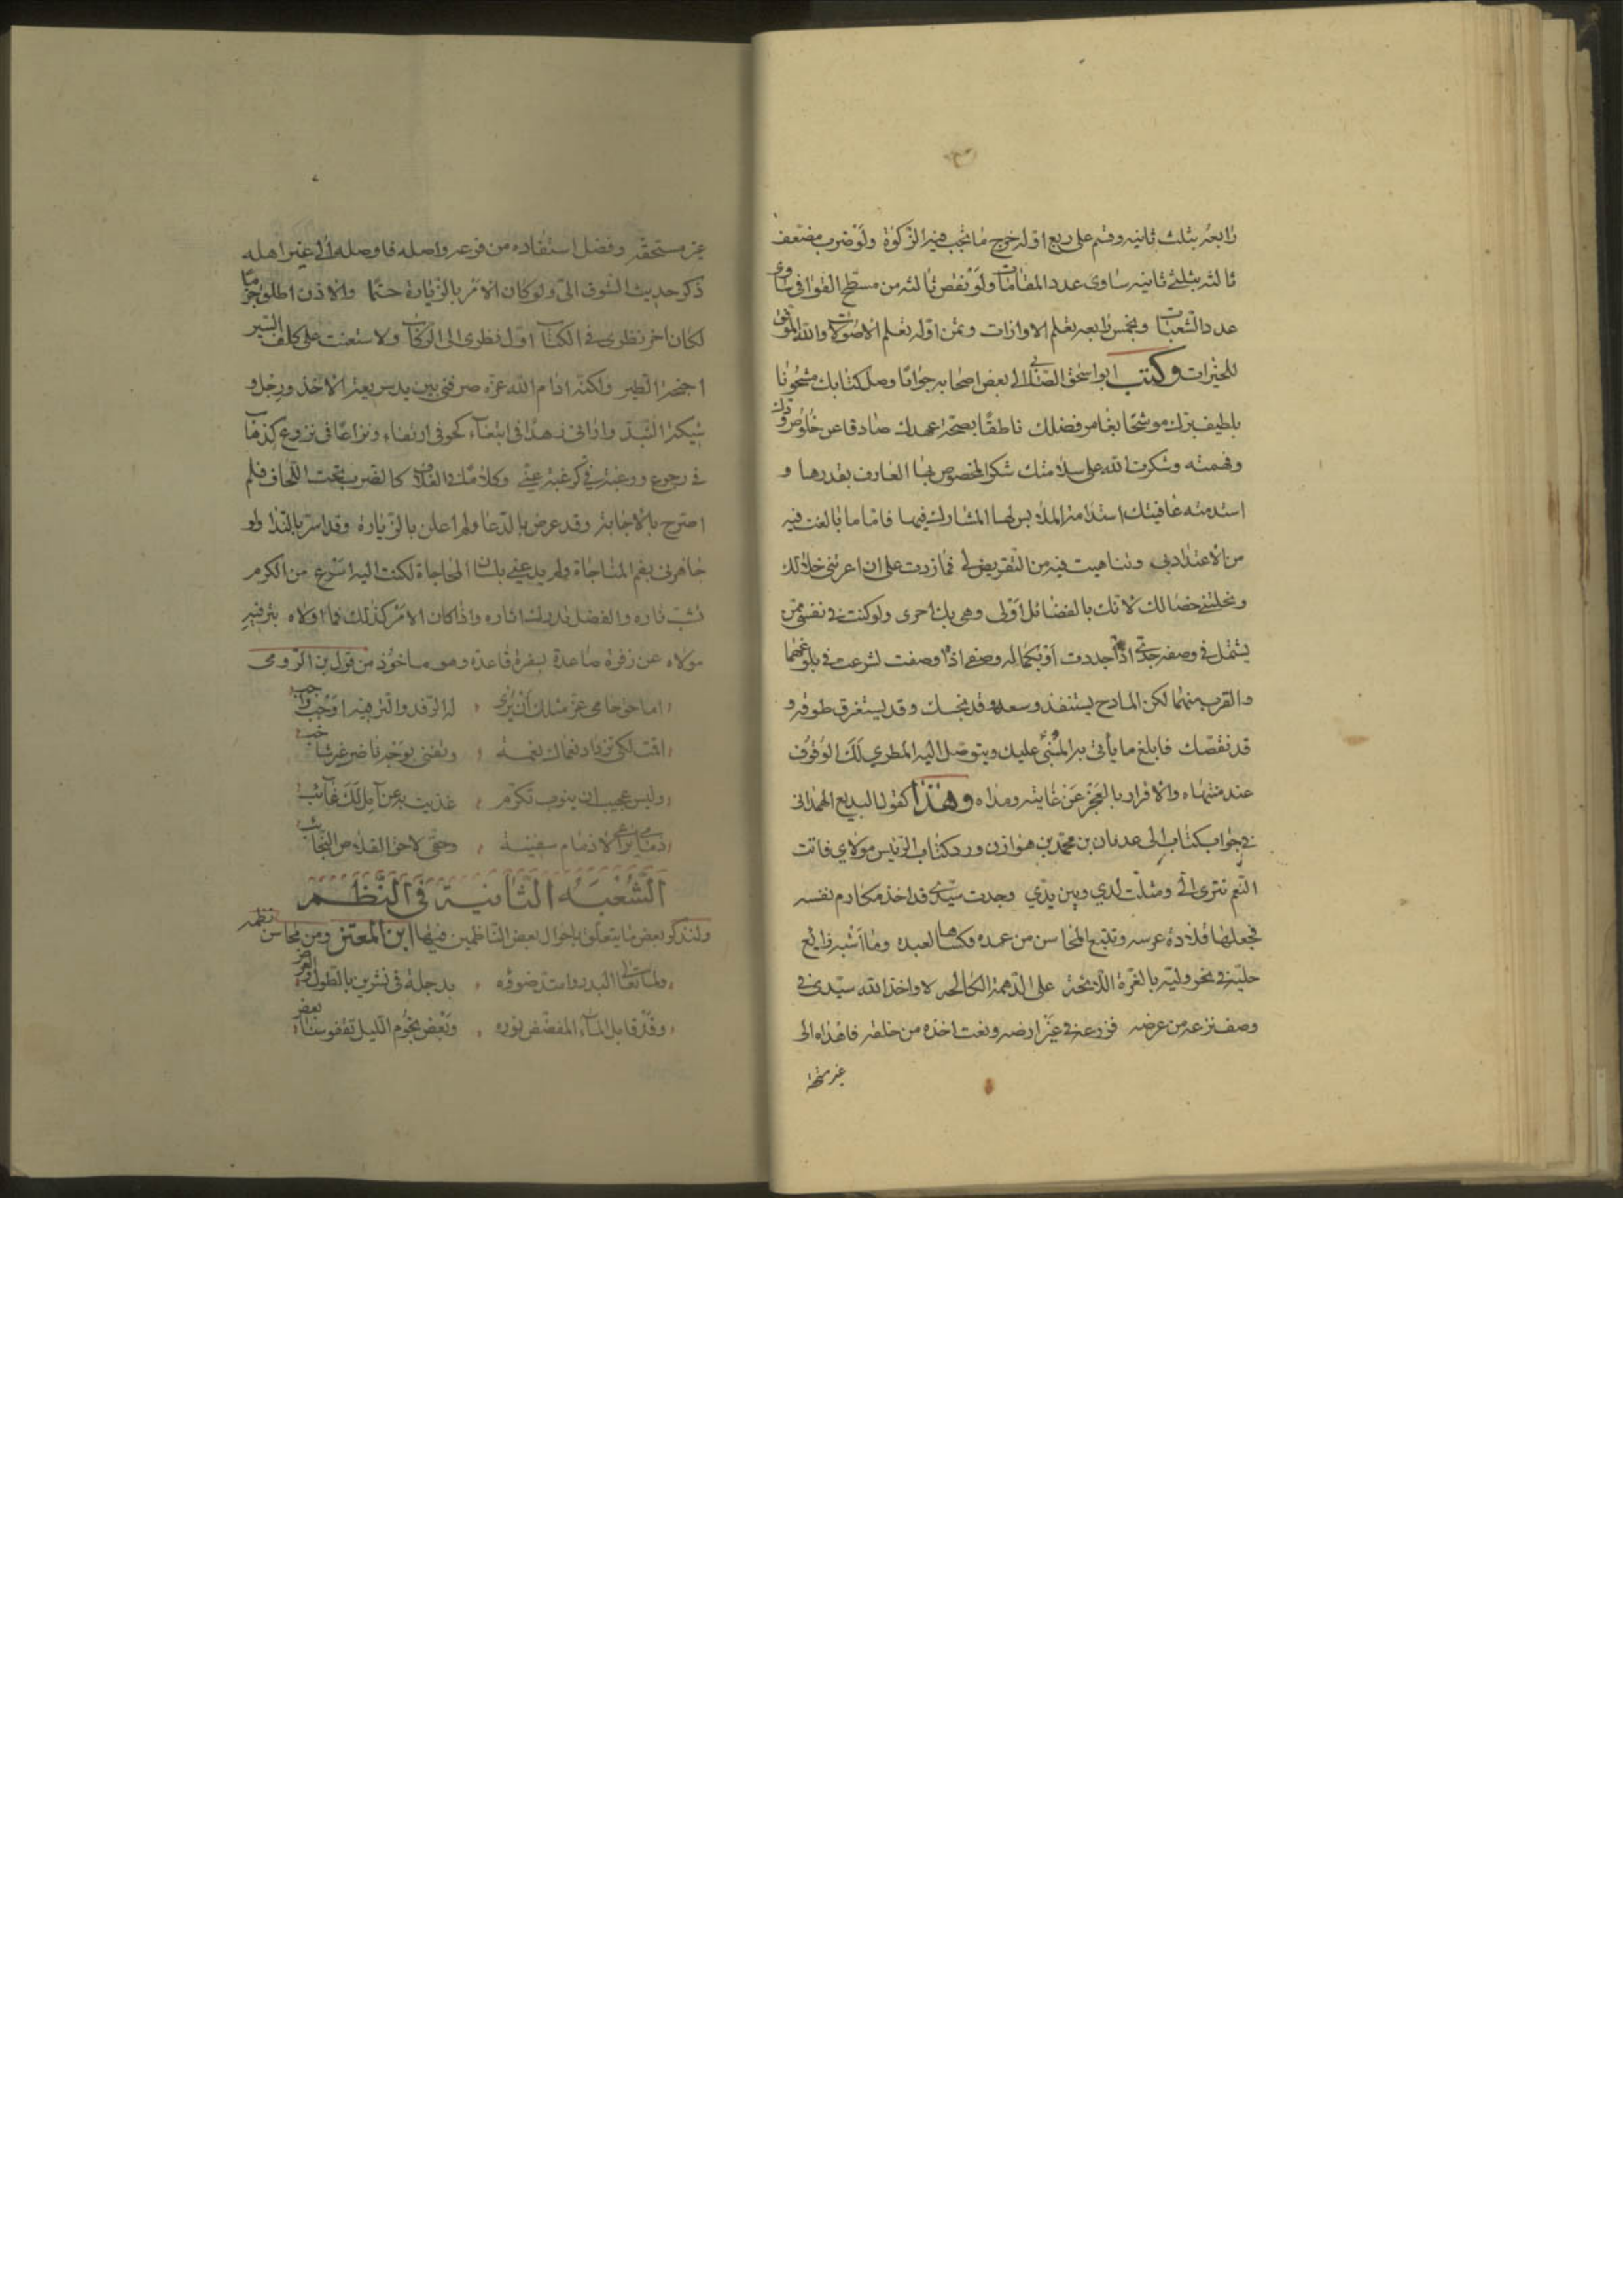 رابعه بثلث ثانيه وقسم على ربع اوله خرج ما تجب فيه الزكوة ولو ضرب مضعف
ثالثه بثلثي ثانيه ساوى عدد المقامات ولو نقص ثالثه من مسطح القوافى ساوى
عدد الشعبات وبخمس رابعه تعلم الاوازات وبثمن اوله تعلم الاصوات والله الموفق
للخيرات وكتب ابو اسحق الصابى الى بعض اصحابه جوابا وصل كتابك مشحونا
بلطيف برك موشحا بغامر فضلك ناطقا بصحة عهدك صادقا عن خلوص ودك
وفهمته وشكرت الله على سلامتك شكر المخصوص بها العارف بقدرها و
استدمته عافيتك استدامة الملابس لها المشارك فيها فاما ما بالغت فيه
من الاعتداد بى وتناهيت فيه من التقريض لى فما زدت على ان اعرتنى خلالك
ونحلتنى خصالك لانك بالفضائل اولى وهى بك احرى ولو كنت فى نفسى ممن
يشتمل فى وصفه حدى اذا حددت او بكماله وصفى اذا وصفت لشرعت فى بلوغهما
والقرب منهما لكن المادح يستنفد وسعه وقد بخسك وقد يستغرق طوقه و
قد نقصك فابلغ ما يأتى به المثنى عليك ويتوصل اليه المطري لك الوقوف
عند منتهاه والاقرار بالعجز عن غايته ومداه وهذا كقول البديع الهمدانى
فى جواب كتاب الى عدنان بن محمد بن هوازن ورد كتاب الرئيس مولاي فاتت
النعم تترى الى ومثلت لدي وبين يدي وجدت سيدى قد اخذ مكارم نفسه
فجعلها قلادة عرسه وتتبع المحاسن من عمده فكساها لعبده وما اشبه رايع
حليته فى نحر وليه بالغرة اللائحة على الدهمة الكالحه لا واخذ الله سيدى فى
وصف نزعه من عرضه فزرعه فى غير ارضه ونعت اخذه من خلقه فاهداه الى
غير مستحقه
غير مستحقه وفضل استفاده من فرعه واصله فاوصله الى غير اهله
ذكر حديث الشوق الى ولو كان الامر بالزيارة حتما والاذن اطلق جزما
لكان اخر نظرى فى الكتاب اول نظرى الى الركاب ولاستعنت على كلف السير
اجنحة الطير ولكنه ادام الله عزه صرفنى بين يد سريعة الاخذ ورجل و
شيكة النبذ واراني زهدا فى ابتغاء كحو فى ارتغاء ونزاعا فى نزوع كذهاب
فى رجوع ورغبة فى كرغبة عني وكلاما فى الغلاف كالضرب تحت اللحاف فلم
اصرح بالاجابة وقد عرض بالدعا ولم اعلن بالزيارة وقد اسر بالندا ولو
جاهرنى بفم المناجاة ولم يدعنى بلسان المحاجاة لكنت اليه اسرع من الكرم
تشب ناره والفضل يدرك اثاره واذا كان الامر كذلك فما اولاه بترفيه
مولاه عن زفرة صاعدة بسفرة قاعدة وهو ماخوذ من قول بن الرومى
اما حق حامى عز مثلك ان يرى له الرفد والترفيه اوجب واجب
اقت لكى تزداد نعماك نعمة وتغنى بوجه ناضر غير شاحب
وليس عجيبا ان ينوب تكرم غذيت به عن آمل لك غائب
ذمامى يرعى لا ذمام سفينة وحقى لا حق القلاص النجائب
الشعبة الثانية فى النظم
ولنذكر بعض ما يتعلق باحوال بعض الناظمين فيها ابن المعتز ومن محاسن نظمه
ولما تعالى البدر وامتد ضوؤه بدجلة فى تشرين بالطول والعرض
وقد قابل الماء المفضض نوره وبعض نجوم الليل تقفو سنا بعض